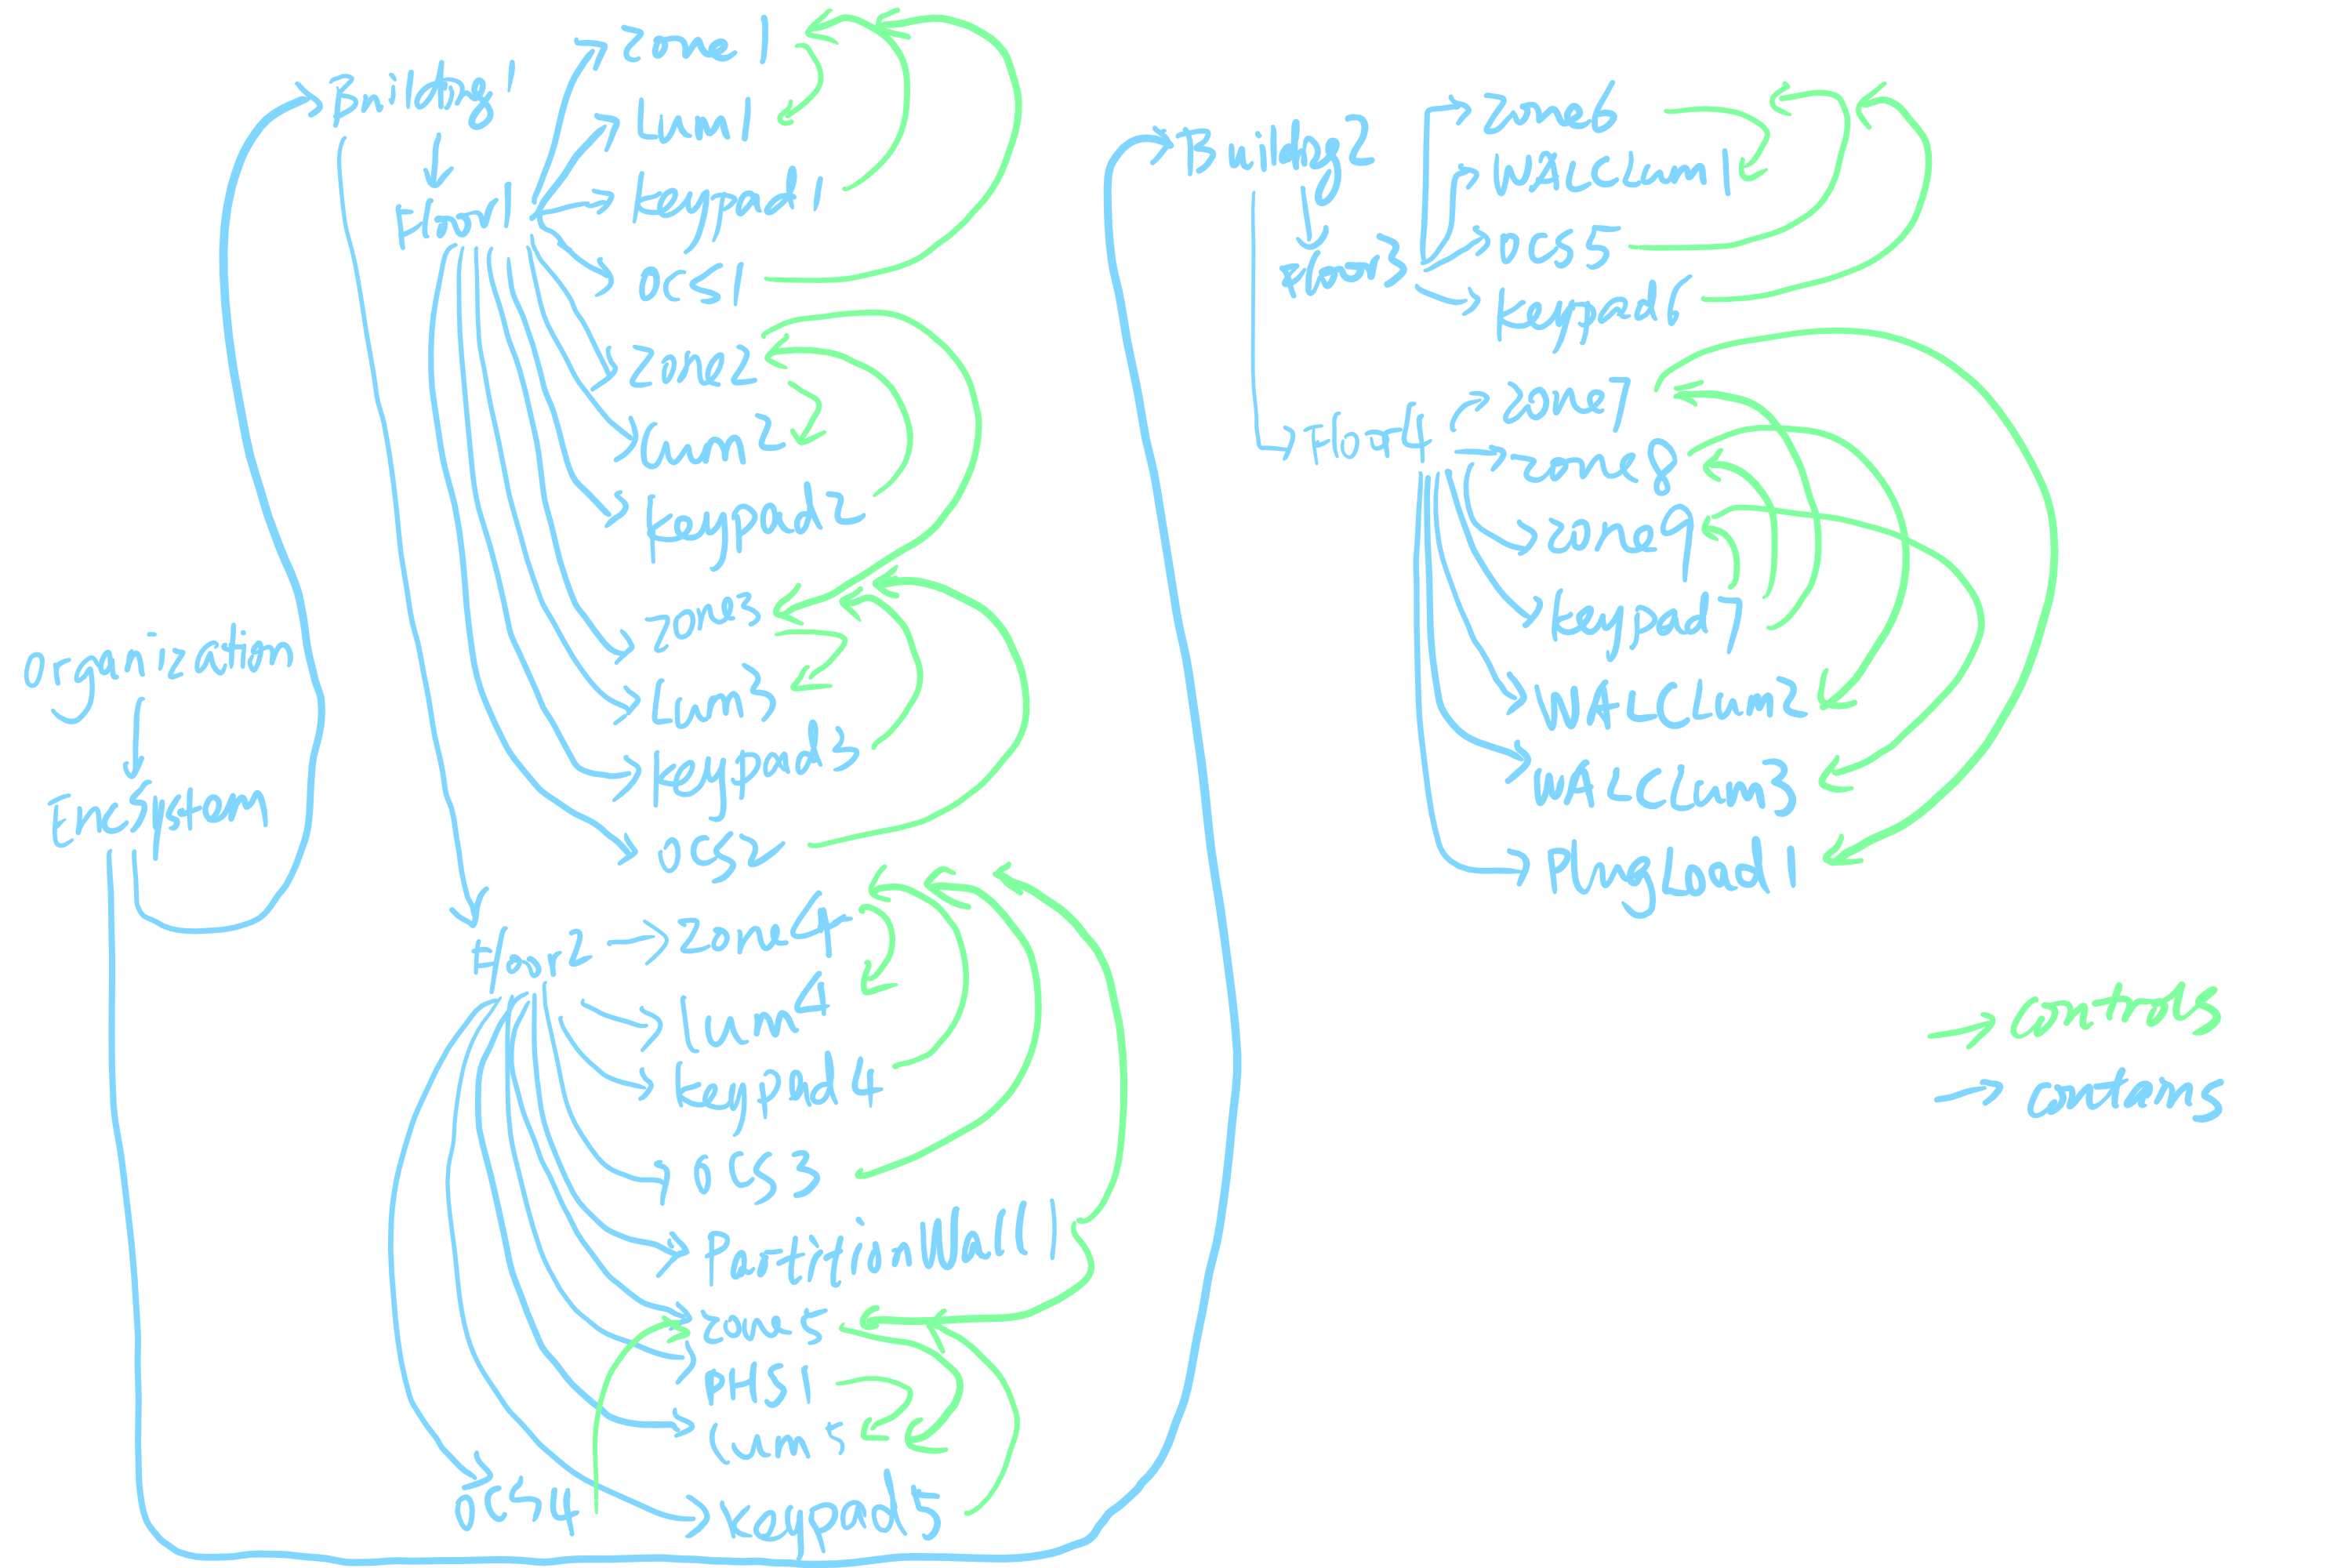 Building1
Floor1
zone1
Lum1
keypad1
ocs1
zone2
Lum2
keypad2
zone3
Lum3
keypad3
ocs2
organization
Encsystem
Floor2
zone4
Lum4
keypad4
ocs3
PartitionWall1
zone5
PHS1
Lum5
ocs4
keypad5
Building2
Floor3
zone6
WALCLum1
ocs5
keypad6
Floor4
zone7
zone8
zone9
keypad7
WALCLum2
WALCLum3
Plugload1
controls
contains